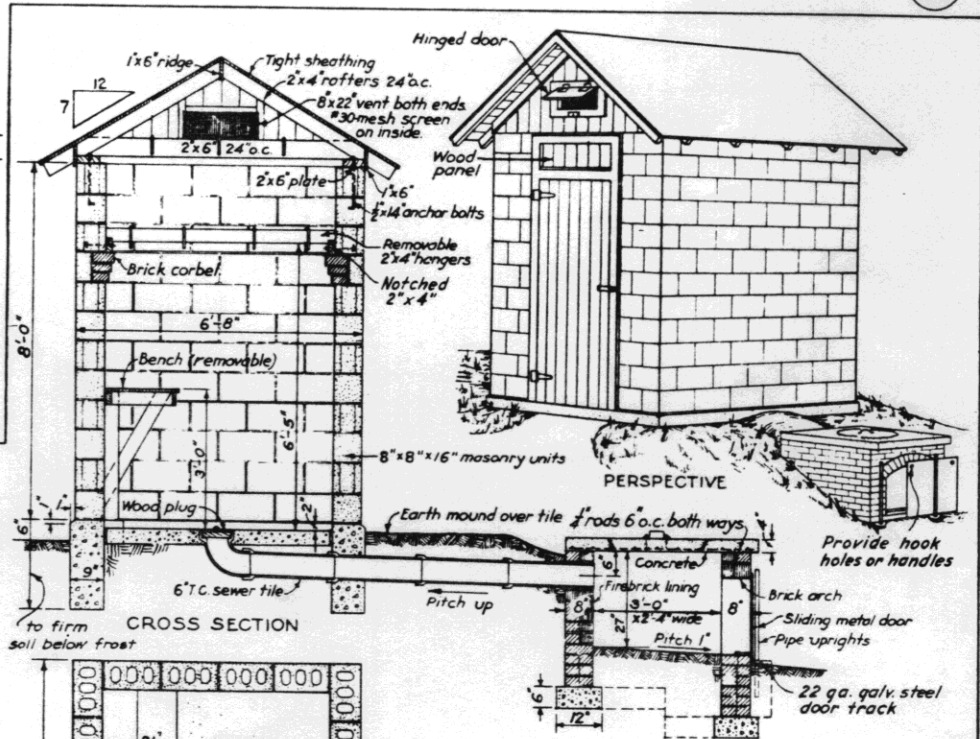 1"x6" ridge
Tight sheathing
2"x4" rafters 24" o.c.
8"x22" vent both ends
#30-mesh screen
on inside.
12
7
2"x6" 24" o.c.
2"x6" plate
1"x6"
½"x14" anchor bolts
Removable
2"x4" hangers
Brick corbel
Notched
2"x4"
8'-0"
6'-8"
Bench (removable)
3'-0"
6'-5"
8"x8"x16" masonry units
1"
1"
6"
2"
Wood plug
9"
6" T.C. sewer tile
to firm
soil below frost
CROSS SECTION
Hinged door
Wood
panel
PERSPECTIVE
Provide hook
holes or handles
Earth mound over tile
rods 6" o.c. both ways
4"
Concrete
6"
Firebrick lining
8"
3'-0"
x2'-4" wide
8"
27"
Pitch 1"
Pitch up
Brick arch
Sliding metal door
Pipe uprights
22 ga. galv. steel
door track
6"
12"